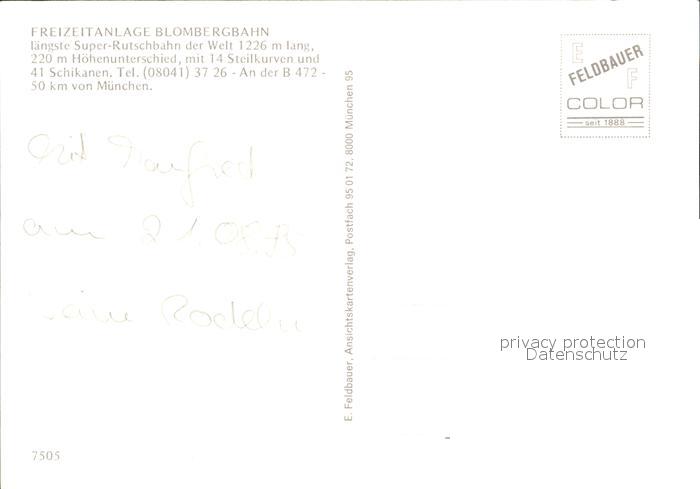 FREIZEITANLAGE BLOMBERGBAHN
längste Super-Rutschbahn der Welt 1226 m lang,
220 m Höhenunterschied, mit 14 Steilkurven und
41 Schikanen. Tel. (08041) 37 26 - An der B 472 -
50 km von München.
Mit Manfred
am 21.08.
beim Rodeln
7505
E. Feldbauer, Ansichtskartenverlag, Postfach 95 01 72, 8000 München 95
E
FELDBAUER
F
COLOR
seit 1888
privacy protection
Datenschutz